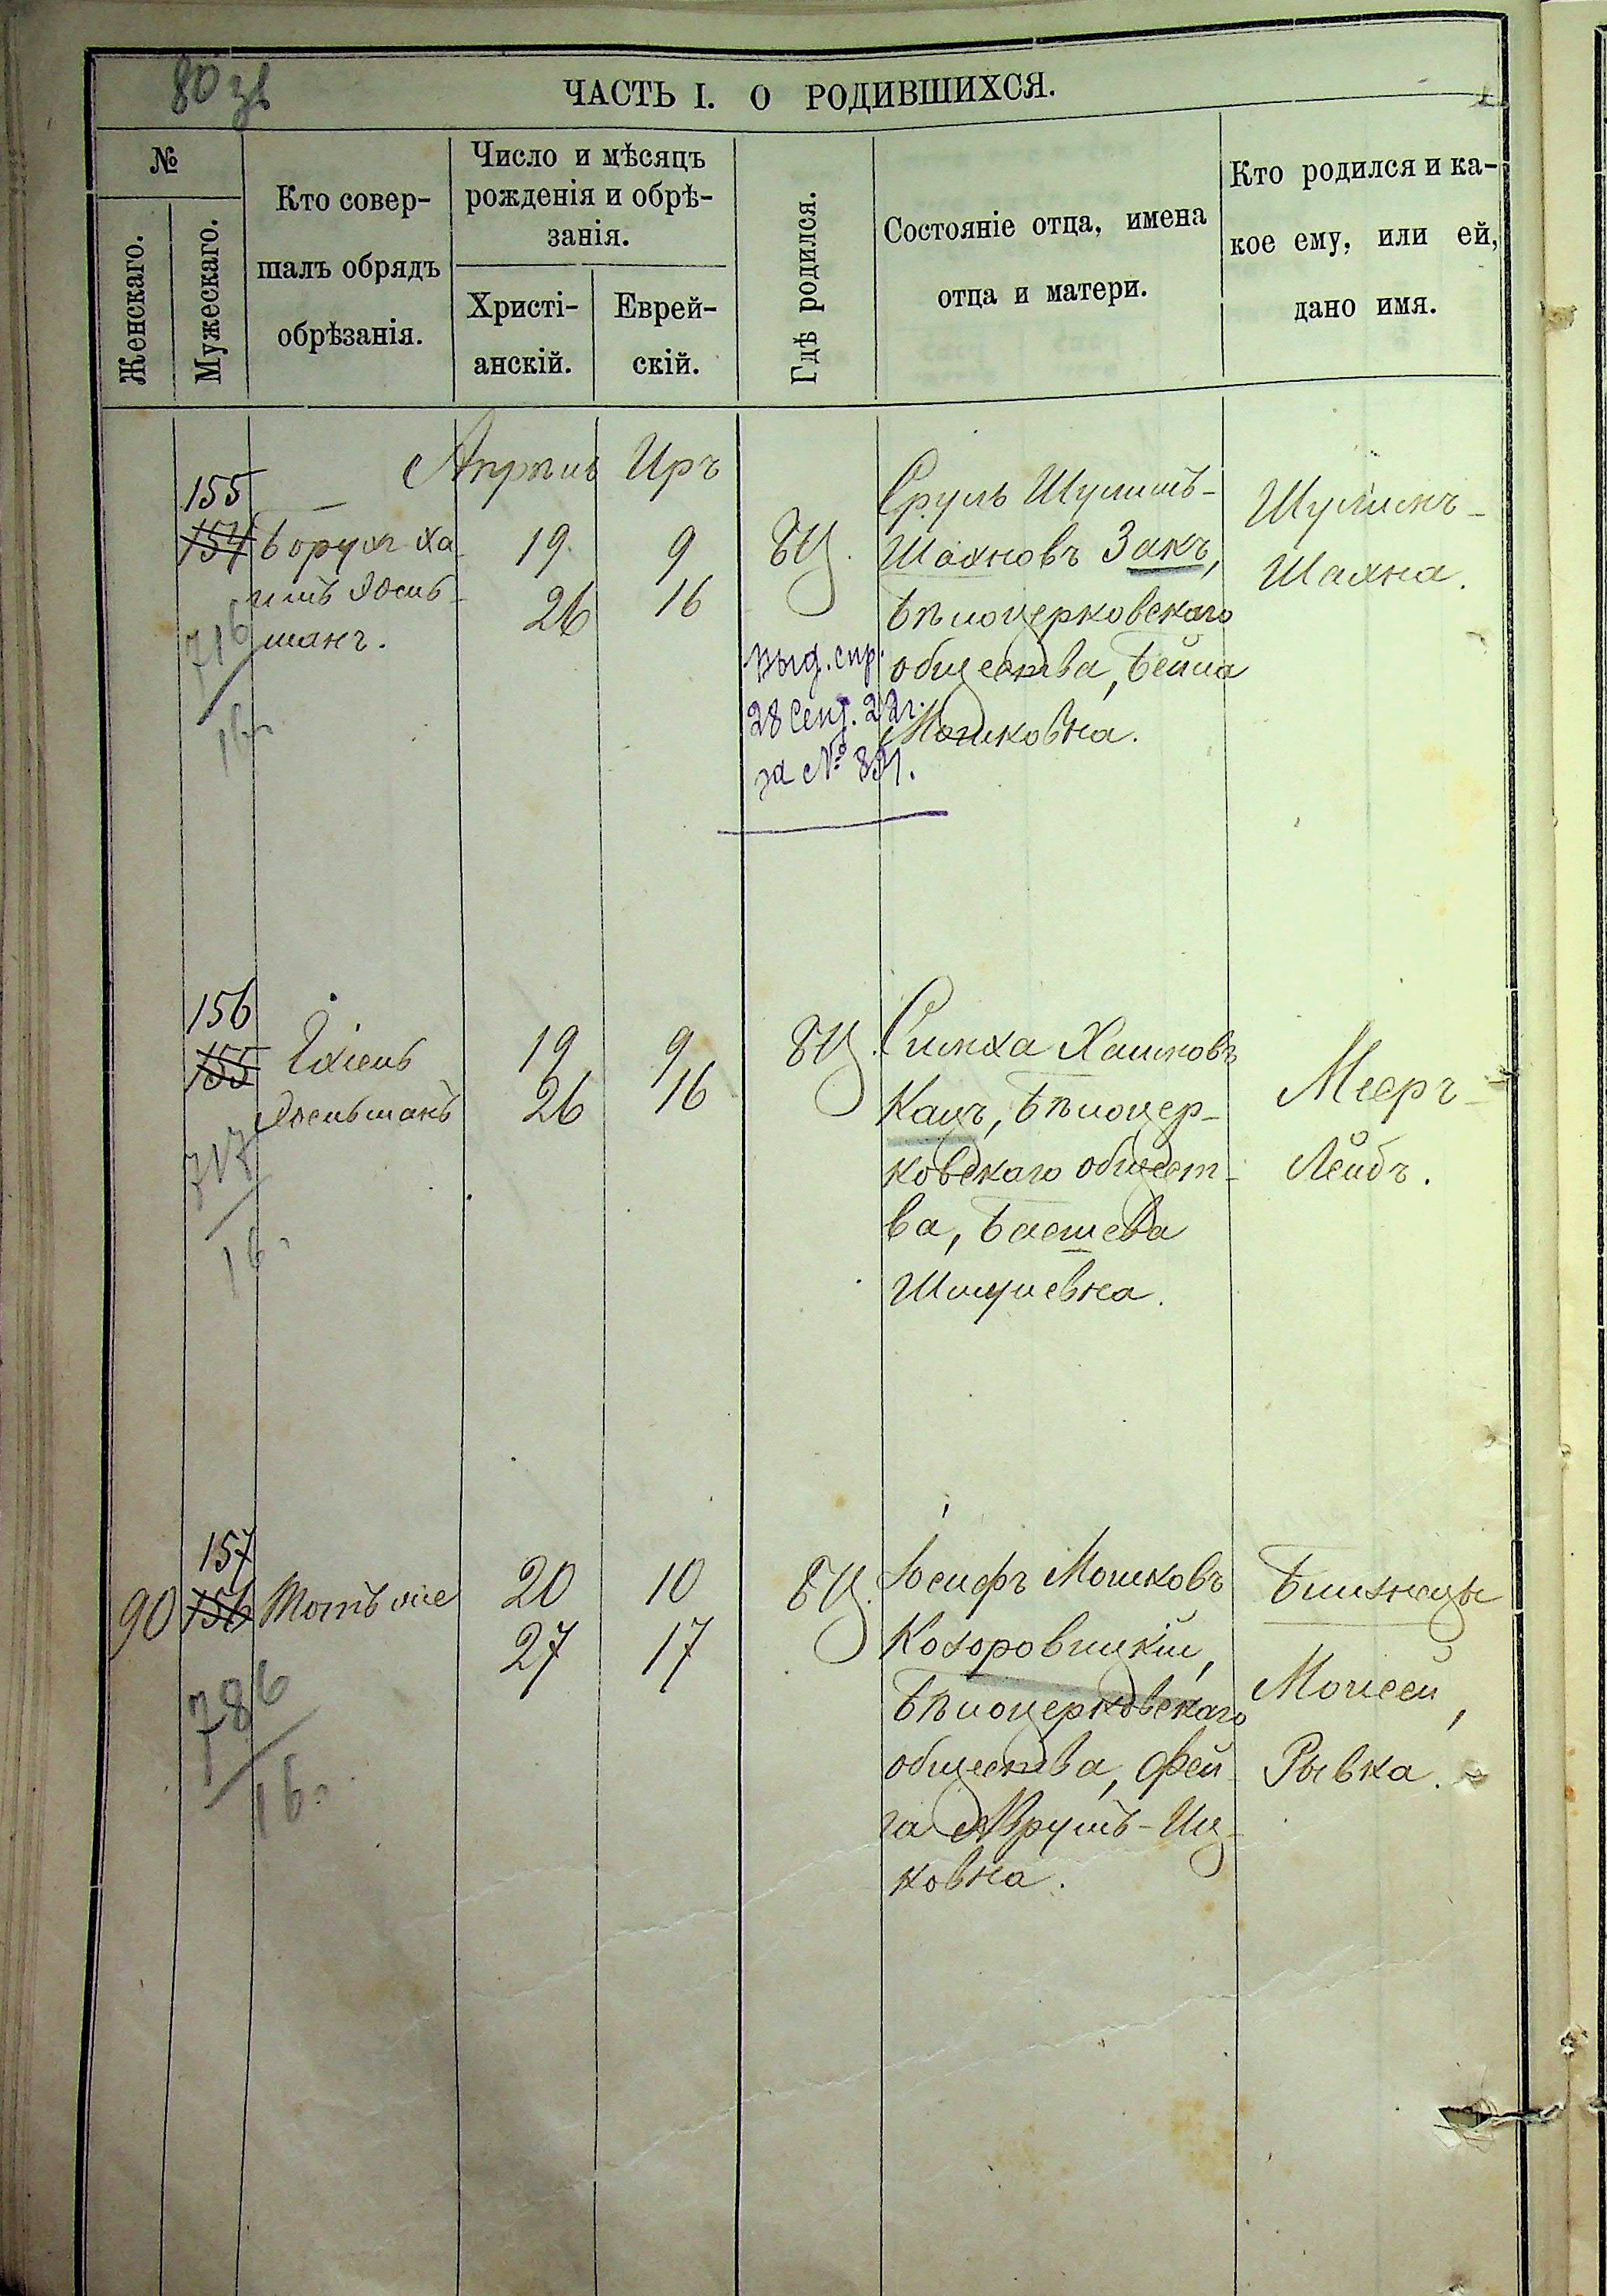 80 зв
ЧАСТЬ I. О РОДИВШИХСЯ.
№
Женскаго.
Мужескаго.
Кто совер-
шалъ обрядъ
обрѣзанія.
Число и мѣсяцъ
рожденія и обрѣ-
занія.
Христі-
анскій.
Еврей-
скій.
Гдѣ родился.
Состояніе отца, имена
отца и матери.
Кто родился и ка-
кое ему, или ей,
дано имя.
Апрѣль Иръ
155
154
716
16
Борухъ Ха
имъ
19
26
9
16
БЦ.
Выд. спр.
28 Сент. 22 г.
за №
Сруль Шулимъ-
Шахновъ Закъ,
Бѣлоцерковскаго
общества, Бейла
Мошковна.
Шулимъ-
Шахна.
156
155
717
16
Іхіель
19
26
9
16
БЦ.
Симха Хаимовъ
Кацъ, Бѣлоцер-
ковскаго общест-
ва, Басшева
Шмулевна.
Мееръ-
Лейбъ.
90
157
156
786
16
Тотъ же
20
27
10
17
БЦ.
Іосифъ Мошковъ
Козоровицкій,
Бѣлоцерковскаго
общества, Фей-
га Аврумъ-Иц-
ковна.
Близнецы
Моисей,
Рывка.